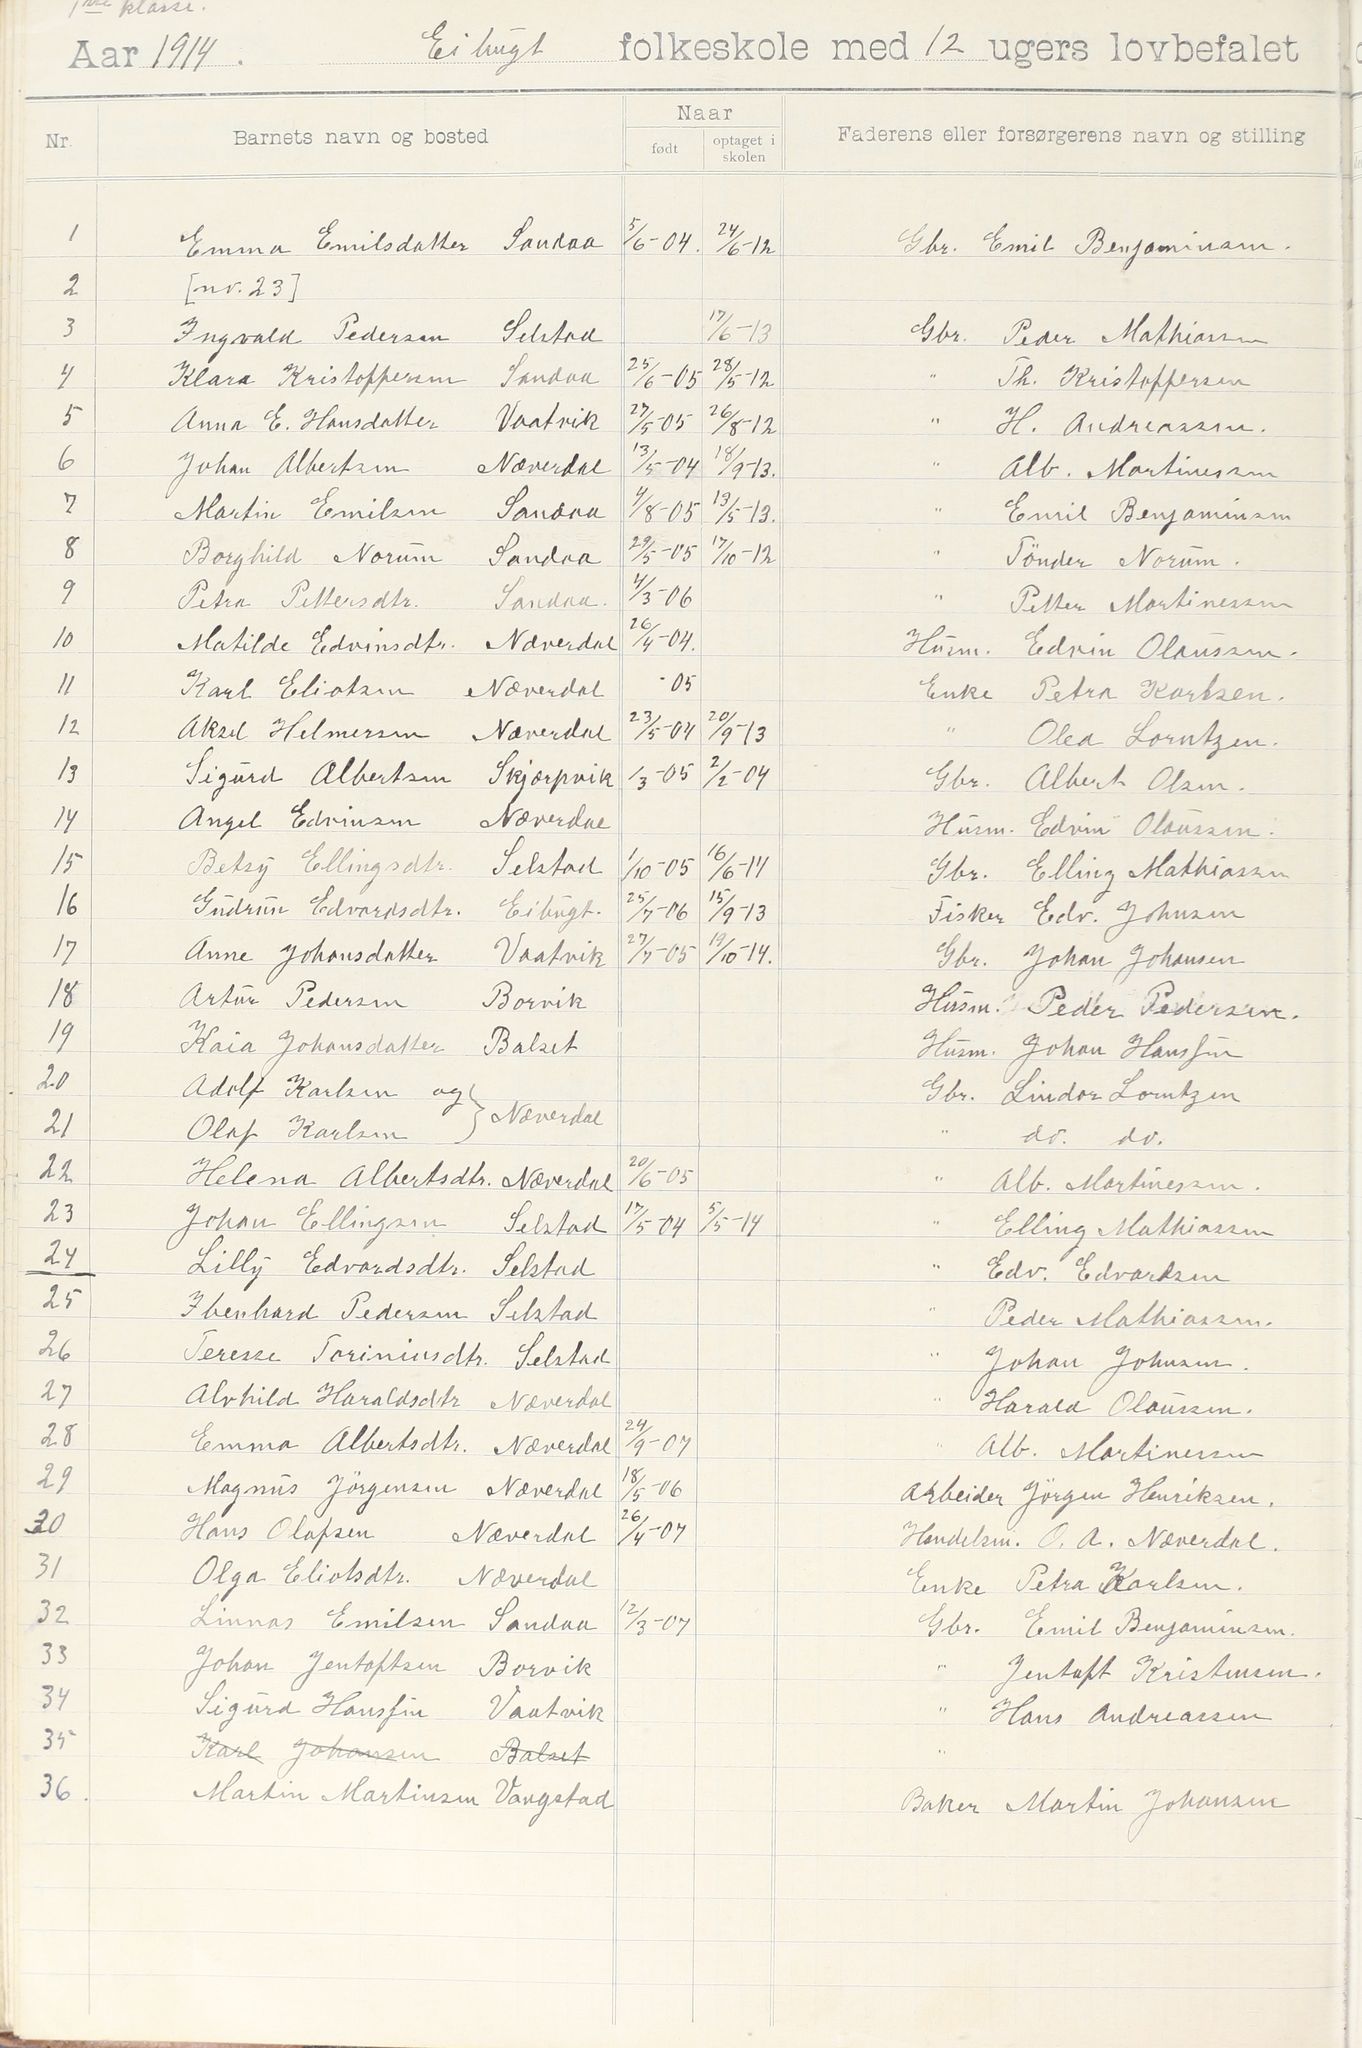 1ste klasse.
Aar 1914. Eibugt folkeskole med 12 ugers lovbefalet
Nr. Barnets navn og bosted Naar født optaget i skolen Faderens eller forsørgerens navn og stilling
1 Emma Emilsdatter Sandaa 5/6-04. 24/6-12 Gbr. Emil Benjaminsen.
2 [nr. 23]
3 Ingvald Pedersen Selstad 17/6-13 Gbr. Peder Mathiassen
4 Klara Kristoffersen Sandaa 25/6-05 28/5-12 " Th. Kristoffersen
5 Anna E. Hansdatter Vaatvik 27/5-05 26/8-12 " H. Andreassen.
6 Johan Albertsen Næverdal 13/5-04 18/9-13. " Alb. Martinessen
7 Martin Emilsen Sandaa 4/8-05 13/5-13. " Emil Benjaminsen
8 Borghild Norum Sandaa 29/5-05 17/10-12 " Tönder Norum.
9 Petra Pettersdtr. Sandaa. 4/3-06 " Petter Martinessen
10 Matilde Edvinsdtr. Næverdal 26/4-04. Husm. Edvin Olaussen.
11 Karl Eliotsen Næverdal -05 Enke Petra Karlsen.
12 Aksel Helmersen Næverdal 23/5-04 20/9-13 " Olea Lorntzen.
13 Sigurd Albertsen Skjærpvik 1/3-05 2/2-04 Gbr. Albert Olsen.
14 Angel Edvinsen Næverdal Husm. Edvin Olaussen.
15 Betsy Ellingsdtr. Selstad 1/10-05 16/6-14 Gbr. Elling Mathiassen
16 Gudrun Edvardsdtr. Eibugt. 25/7-06 15/9-13 Fisker Edv. Johnsen
17 Anne Johansdatter Vaatvik 27/7-05 19/10-14. Gbr. Johan Johansen
18 Artur Pedersen Borvik Husm. Peder Pedersen.
19 Kaia Johansdatter Balset Husm. Johan Hanssen
20 Adolf Karlsen og } Næverdal Gbr. Lindor Lorntzen
21 Olaf Karlsen " do. do.
22 Helena Albertsdtr. Næverdal 20/6-05 " Alb. Martinessen.
23 Johan Ellingsen Selstad 17/5-04 5/5-14 " Elling Mathiassen
24 Lilly Edvardsdtr. Selstad " Edv. Edvardsen
25 Ibenhard Pedersen Selstad " Peder Mathiassen.
26 Teresse Toriniusdtr. Selstad " Johan Johnsen.
27 Alvhild Haraldsdtr Næverdal " Harald Olaussen.
28 Emma Albertsdtr. Næverdal 24/9-07 " Alb. Martinessen
29 Magnus Jörgensen Næverdal 18/5-06 Arbeider Jörgen Henriksen.
30 Hans Olafsen Næverdal 26/4-07 Handelsm. O. A. Næverdal.
31 Olga Eliotsdtr. Næverdal Enke Petra Karlsen.
32 Linnas Emilsen Sandaa 12/3-07 Gbr. Emil Benjaminsen.
33 Johan Jentoftsen Borvik " Jentoft Kristensen.
34 Sigurd Hanssen Vaatvik " Hans Andreassen
35 Karl Johansen Balset "
36. Martin Martinsen Vangstad Baker Martin Johansen